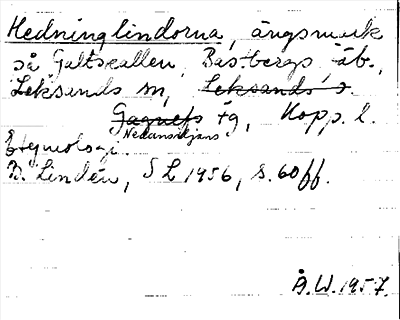 Hedninglindorna, ängsmark
på Galtskallen, Bastbergs fäb.,
Leksands sn, Leksands
Gagnefs tg, Kopp. l.
Nedansiljans
Etymologi.
B. Lindén, SL 1956, s. 60 ff.
Å.W. 1957.